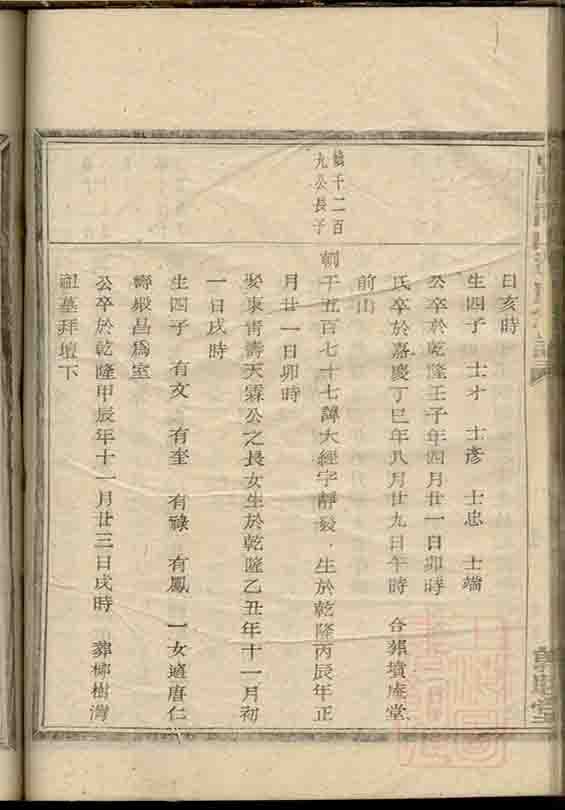 日亥時
生四子 士才 士彥 士忠 士端
公卒於乾隆壬子年四月廿一日卯時
氏卒於嘉慶丁巳年八月廿九日午時 合葬墳庵堂
前山
千二百
九公長子
千五百七十七諱大經字靜毅 生於乾隆丙辰年正
月廿一日卯時
娶東靑壽天霖公之長女生於乾隆乙丑年十一月初
一日戌時
生四子 有文 有奎 有祿 有鳳 一女適唐仁
壽嚴昌爲室
公卒於乾隆甲辰年十一月廿三日戌時 葬柳樹灣
祖墓拜壇下
堂